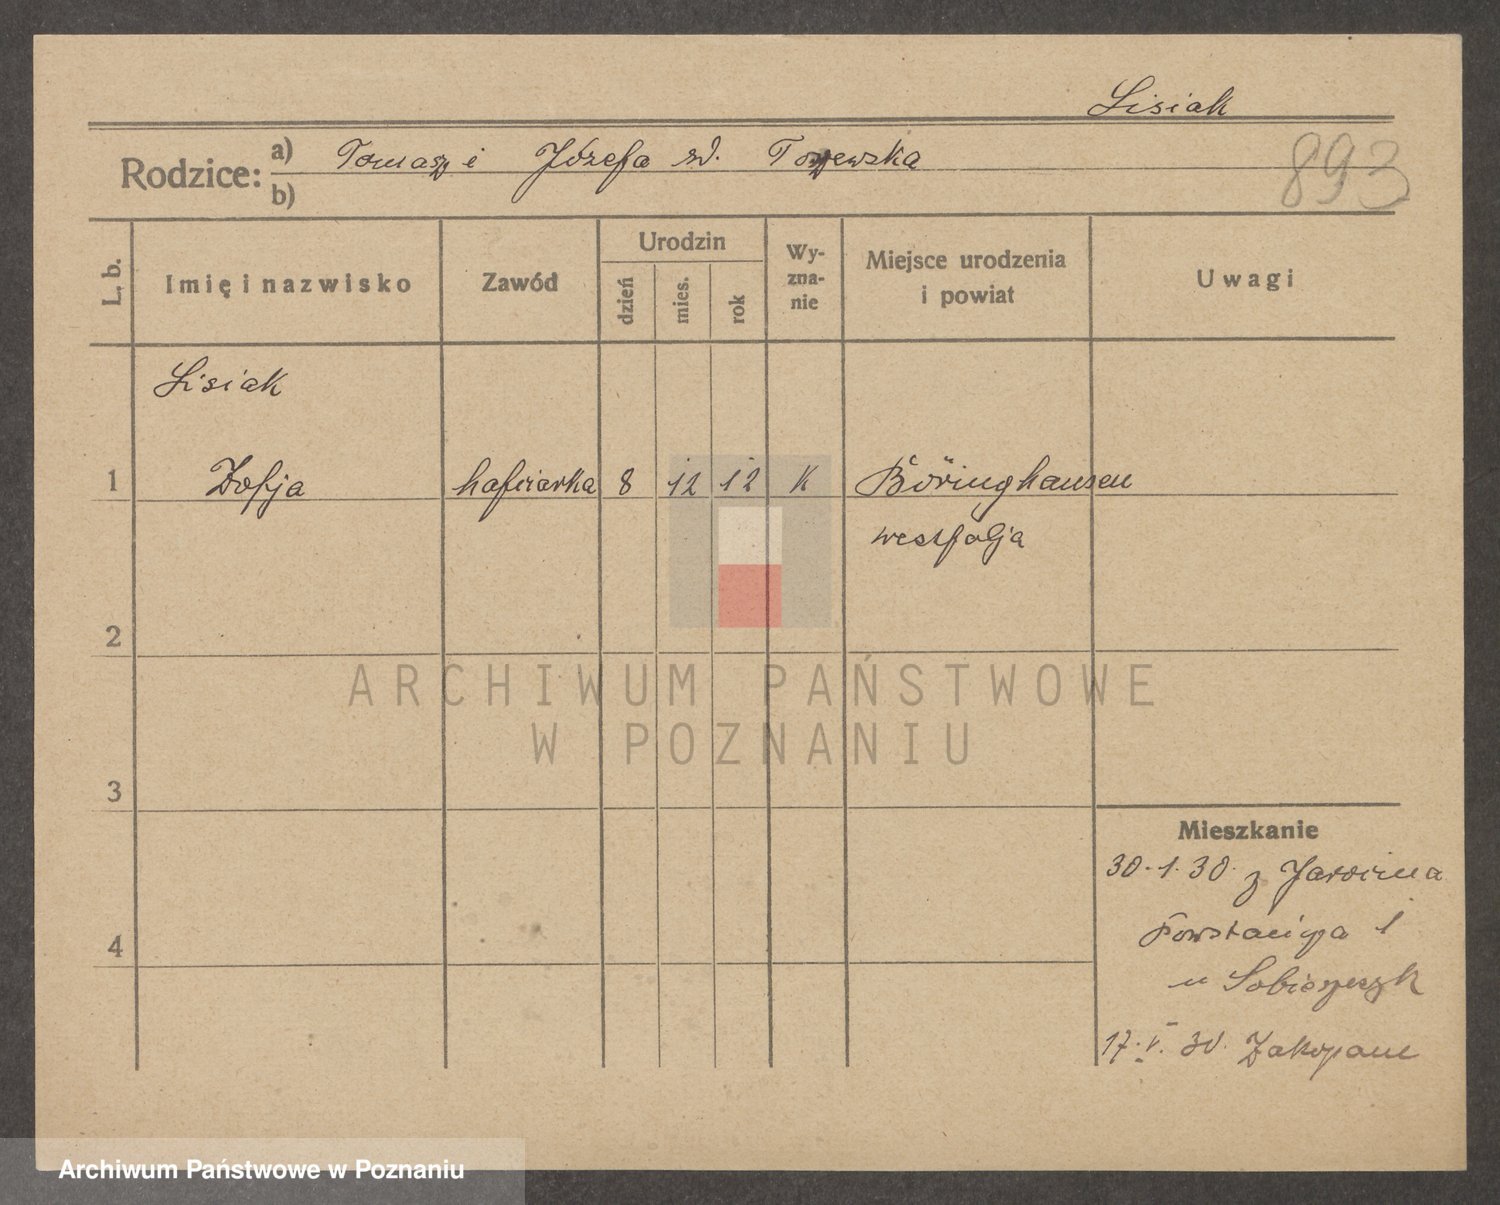 Lisiak
893
Rodzice: a) Tomasz i Józefa zd.
b)
L. b. Imię i nazwisko Zawód Urodzin dzień mies. rok Wyzna-nie Miejsce urodzenia i powiat Uwagi
Lisiak
1 Zofja hafciarka 8 12 12 K Böringhausen
westfalja
2
ARCHIWUM PAŃSTWOWE
W POZNANIU
3
Mieszkanie
30.1.30. z Jarocina
4 1
u
17.V.30. Zakopane
Archiwum Państwowe w Poznaniu